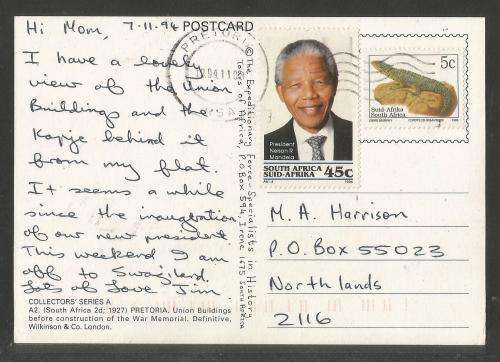 Hi Mom, 7-11-94 POSTCARD
I have a lovely
view of the Union
Buildings and the
Kopje behind it
from my flat.
It seems a while
since the inaugration
of our new president
This weekend I am
off to Swaziland.
Lots of Love Jim
COLLECTORS' SERIES A
A2. (South Africa 2d; 1927) PRETORIA. Union Buildings
before construction of the War Memorial. Definitive,
Wilkinson & Co. London.
© The Expeditionary Force Specialists in History
Tours of Africa, P.O Box 594, Irene, 1675 South Africa
PRETORIA
RSA
President
Nelson R
Mandela
SOUTH AFRICA
SUID-AFRIKA 45c
5c
Suid-Afrika
South Africa
M. A. Harrison
P.O. Box 55023
Northlands
2116